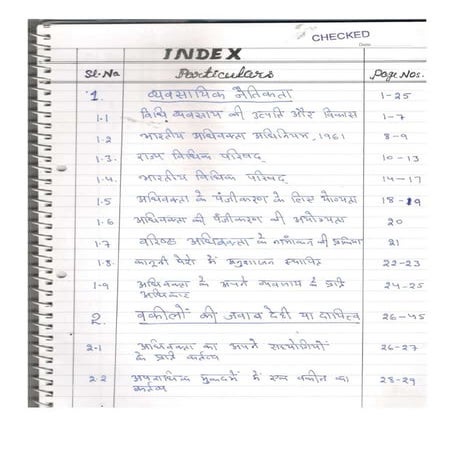 CHECKED
INDEX
Sl.No Particulars Page Nos.
1. व्यवसायिक नैतिकता 1-25
1-1 विधि व्यवसाय की उत्पति और विकास 1-7
1-2 भारतीय अधिवक्ता अधिनियम, 1961 8-9
1-3. राज्य विधिक परिषद् 10-13
1-4. भारतीय विधिक परिषद् 14-17
1-5 अधिवक्ता के पंजीकरण के लिए योग्यता 18-19
1-6 अधिवक्ता की पंजीकरण की अयोग्यता 20
1-7 वरिष्ठ अधिवक्ता के नामांकन की प्रक्रिया 21
1-8. कानूनी पेशे में अनुशासन स्थापित 22-23
1-9 अधिवक्ता के अपने व्यवसाय के प्रति 24-25
अधिकार
2. वकीलों की जवाब देही या दायित्व 26-45
2-1 अधिवक्ता का अपने सहयोगियों 26-27
के प्रति कर्तव्य
2-2 अपराधिक मुकदमें में एक वकील का 28-29
कर्तव्य